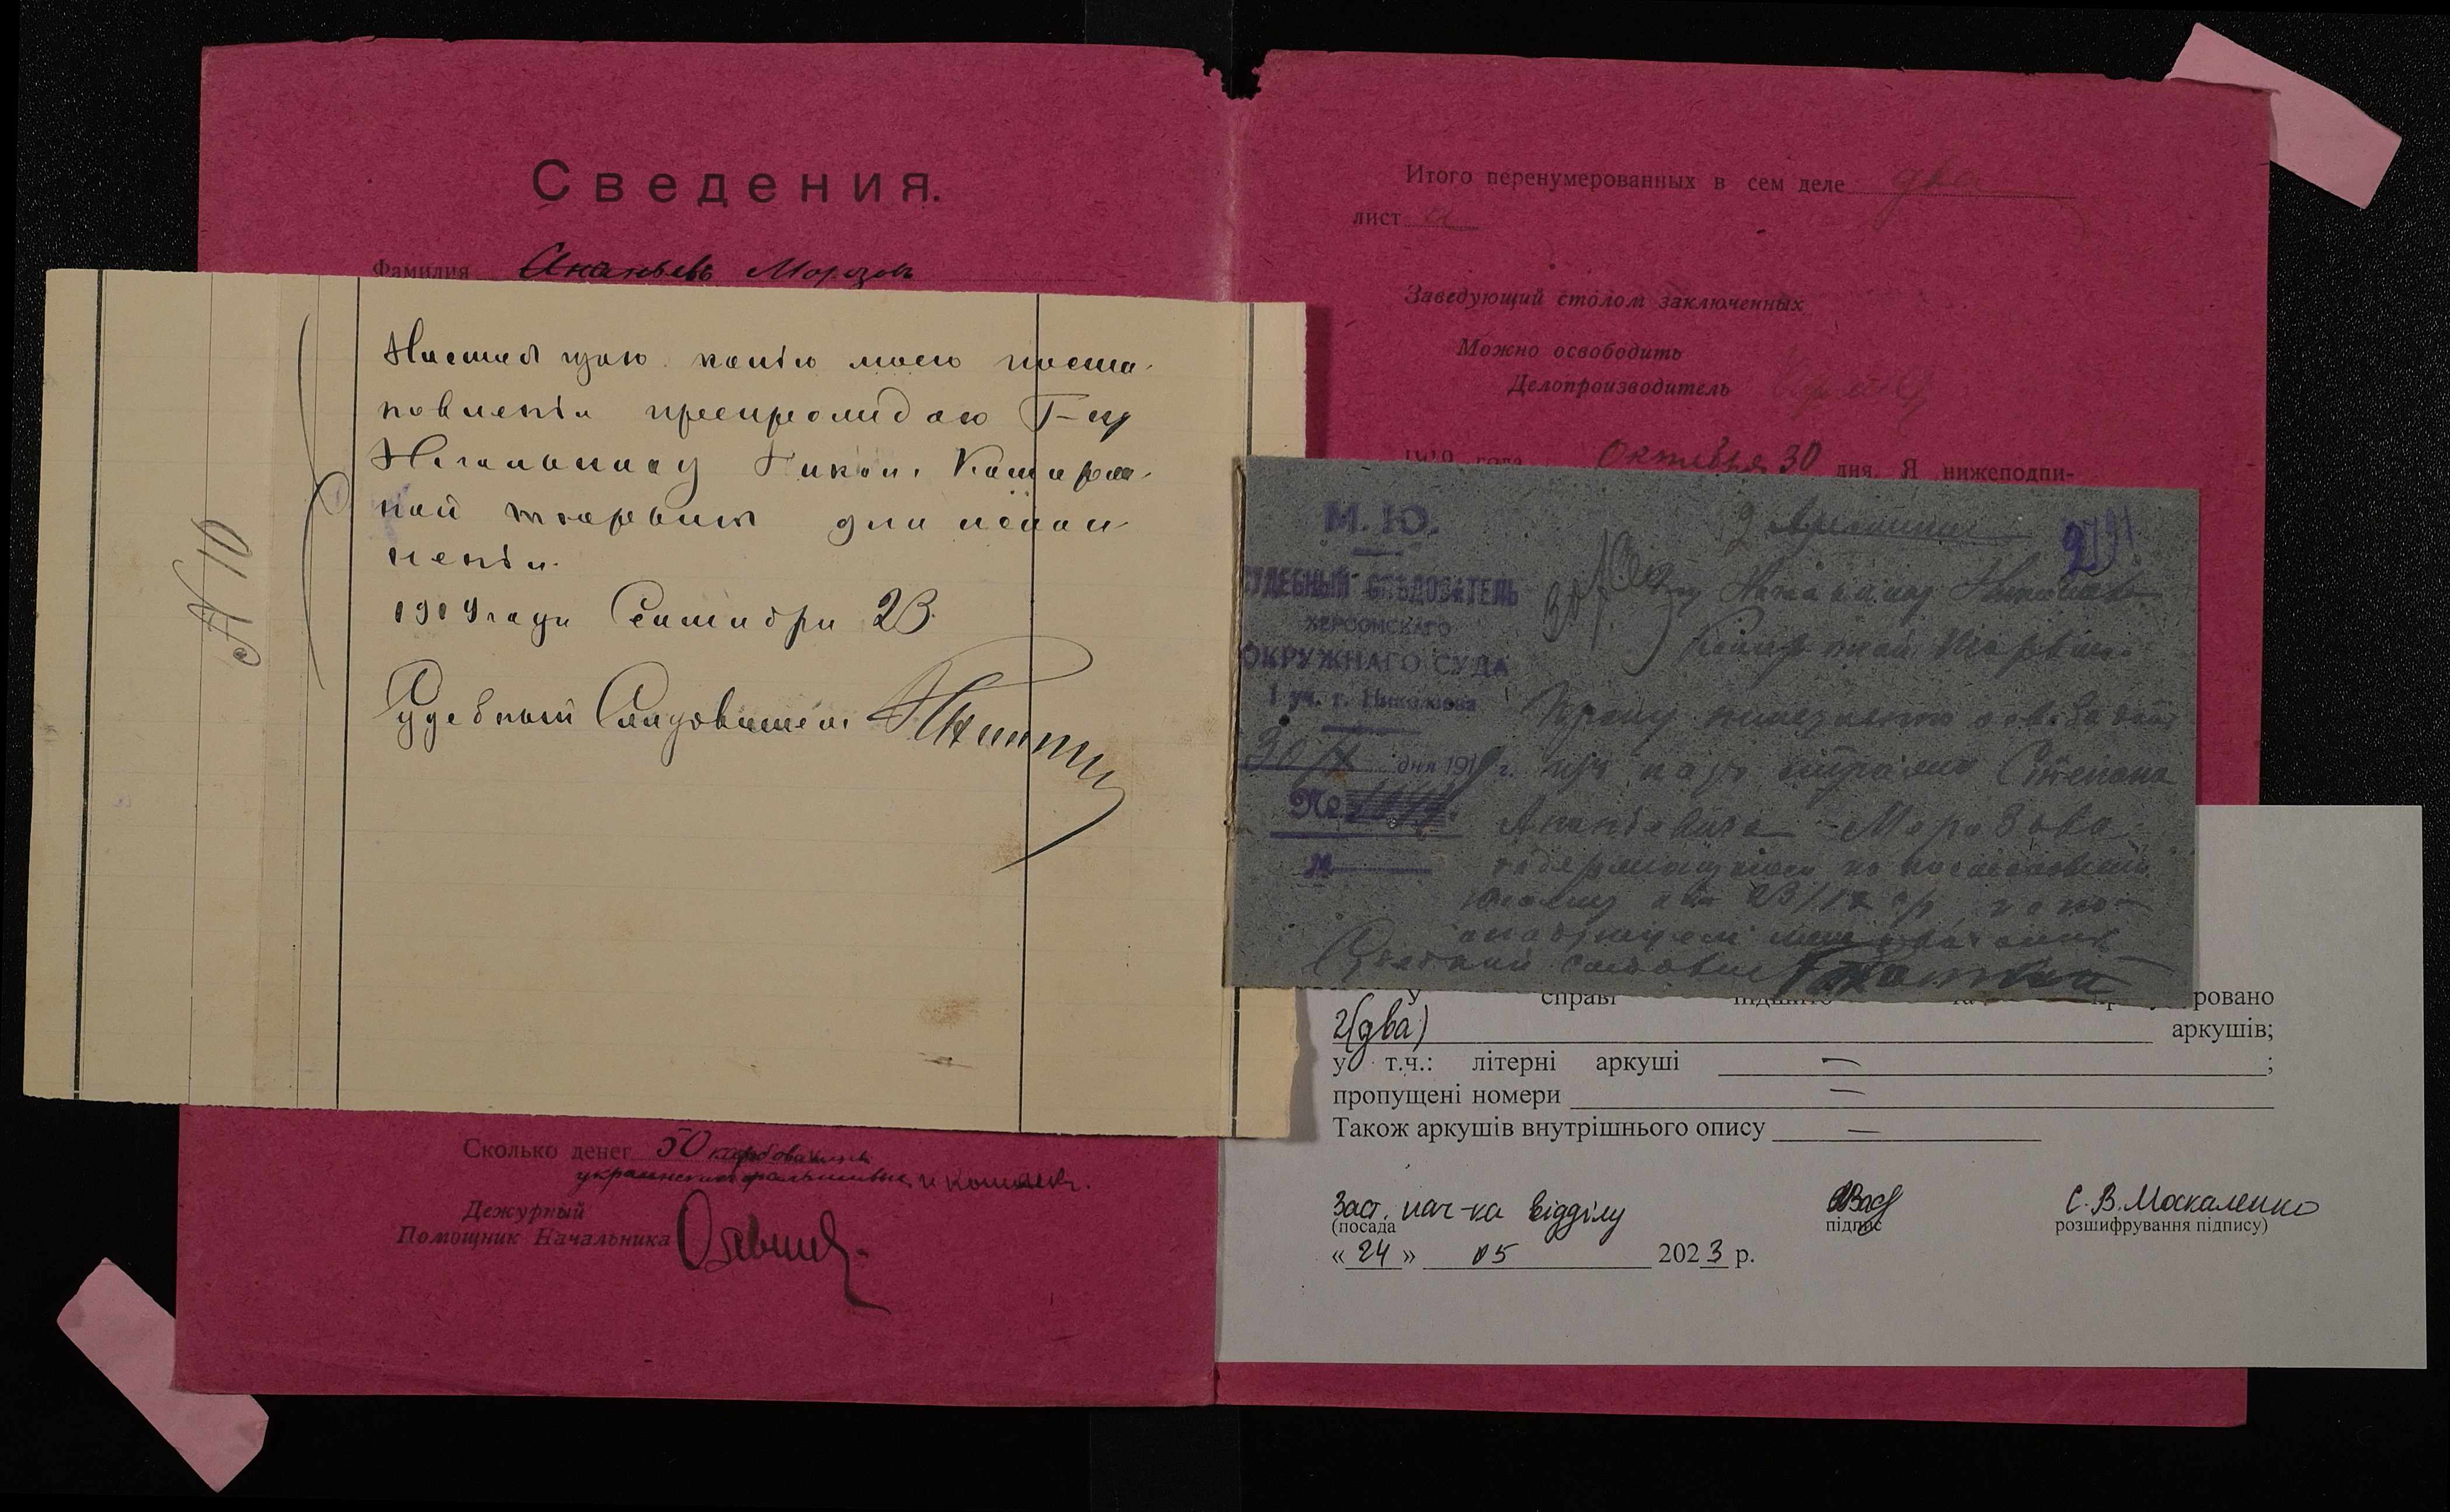 Сведения.
Фамилия Ананьевъ Морозовъ
Настоящую копію моего поста-
новленія препровождаю Г-ну
Начальнику Никол. Каторж-
ной тюрьмы для испол-
ненія.
1919 года Сентября 23.
Судебный Следователь
№ 10
Сколько денег 50 карбованцев
украинских фальшивые и кошелек.
Дежурный
Помощник Начальника
Итого перенумерованных в сем деле два
лист а
Заведующий столом заключенных
Можно освободить
Делопроизводитель
1919 года Октября 30 дня. Я нижеподпи-
М. Ю.
СУДЕБНЫЙ СЛѢДОВАТЕЛЬ
ХЕРСОНСКАГО
ОКРУЖНАГО СУДА
1 уч. г. Николаева
30/X дня 1919 г.
№
№
2
Начальнику Николаев
Каторжной тюрьмы
Прошу немедленно освободить
из под стражи Степана
Ананьевича Морозова
содержащагося по постановленію
моему отъ 23/IX с/г
Судебный следователь
У справі підшито та пронумеровано
2(два) аркушів;
у т.ч.: літерні аркуші — ;
пропущені номери —
Також аркушів внутрішнього опису —
Заст. нач-ка відділу С. В. Москаленко
(посада підпис розшифрування підпису)
« 24 » 05 2023 р.